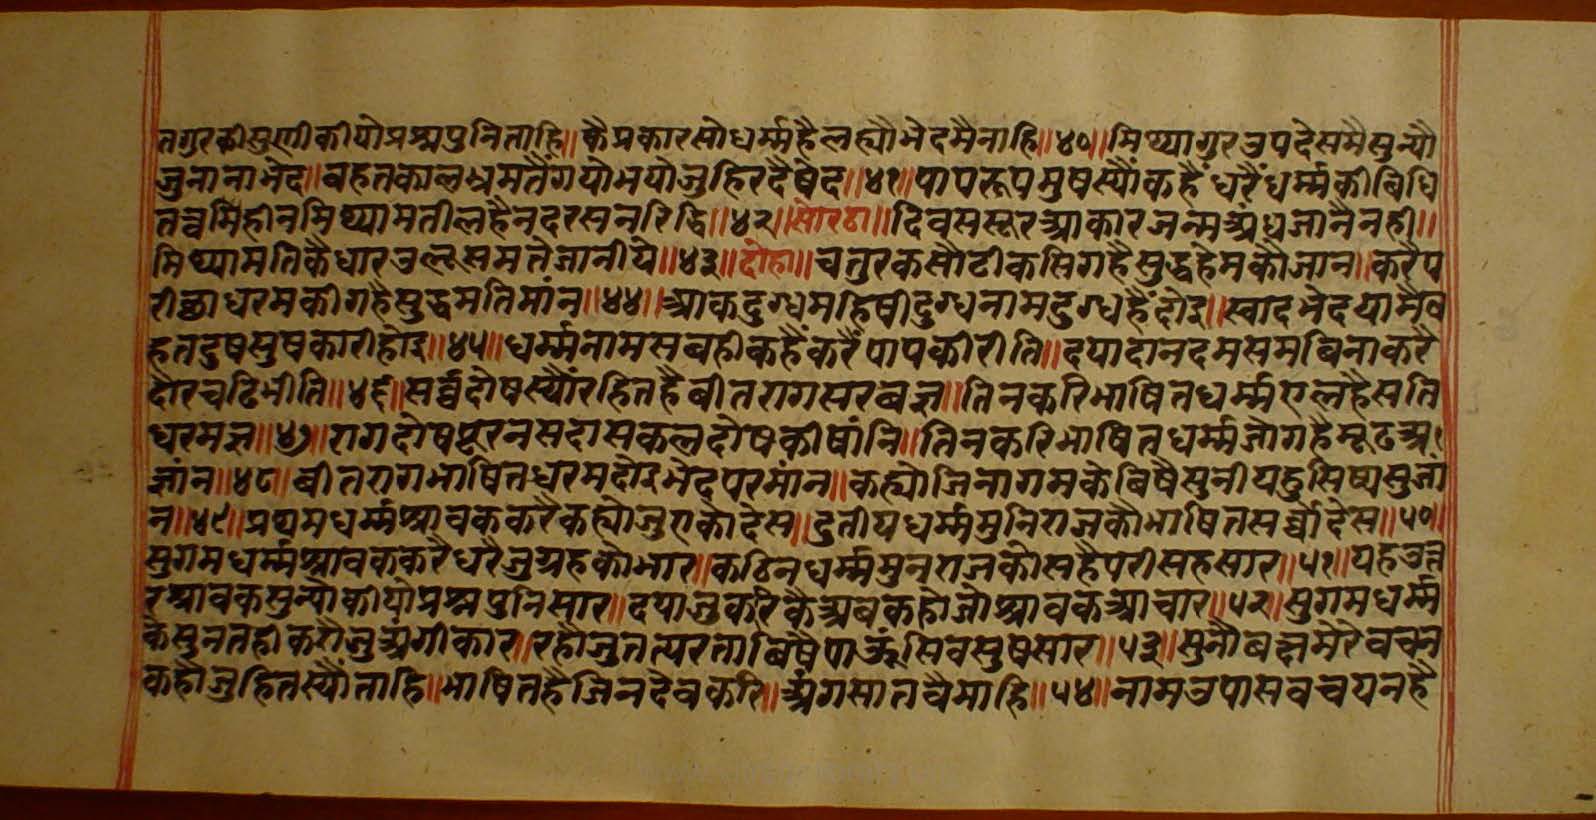 तगुरकीसुणीकीयोप्रश्नपुनिताहि॥कैप्रकारसोधर्म्महैलह्यौभेदमैनाहि॥४०॥मिथ्यागुरउपदेसमैसुन्यौ
जुनानाभेद॥बहतकालभ्रमतैंगयोभयोजुहिरदैषेद॥४१॥पापरूपमुषस्यौंकहैंधरैंधर्म्मकीबिधि
तत्वमैहीनमिथ्यामतीलहैनदरसनरिद्धि॥४२॥सोरठा॥दिवससूरआकारजन्मअंधजानैनही॥
मिथ्यामतिकैधारउलूसमतैजानीये॥४३॥दोहा॥चतुरकसौटीकसिगहैसुद्धहेमकौजान॥करैप
रीछ्याधरमकीगहैसुद्धमतिमांन॥४४॥आकदुग्धमहिषीदुग्धनामदुग्धहैंदोइ॥स्वादभेदयामैब
हतदुषसुषकारीहोइ॥४५॥धर्म्मनामसबहीकहैंकरैंपापकीरीति॥दयादानदमसमबिनाकरै
दारचढिभीति॥४६॥सर्व्वदोषस्यौंरहितहैबीतरागसरबज्ञ॥तिनकरिभाषितधर्म्मएलहैसति
धरमज्ञ॥४७॥रागदोषपूरनसदासकलदोषकीषांनि॥तिनकरिभाषितधर्म्मजोगहैमूढअ
ज्ञांन॥४८॥बीतरागभाषितधरमदोइभेदपरमांन॥कह्योजिनागमकेबिषैसुनीयहुसिष्यसुजां
न॥४९॥प्रथमधर्म्मश्रावककरैकह्योजुएकोदेस॥दुतीयधर्म्ममुनिराजकौभाषितसर्व्वोदेस॥५०॥
सुगमधर्म्मश्रावककरैधरैजुग्रहकोभार॥कठिनधर्म्ममुनराजकौसहैपरीसहसार॥५१॥यहउत्त
रश्रावकसुन्योकीयोप्रश्नपुनिसार॥दयाजुकरिकैअबकहोजोश्रावकआचार॥५२॥सुगमधर्म्म
कैसुनतहीकरौजुअंगीकार॥रहौजुतत्परताबिषैपाऊंसिवसुषसार॥५३॥सुनौबछमेरेवचन
कहौजुहितस्यौंताहि॥भाषितहैजिनदेवकरि॥अंगसातवैमाहि॥५४॥नामउपासवचयनहै